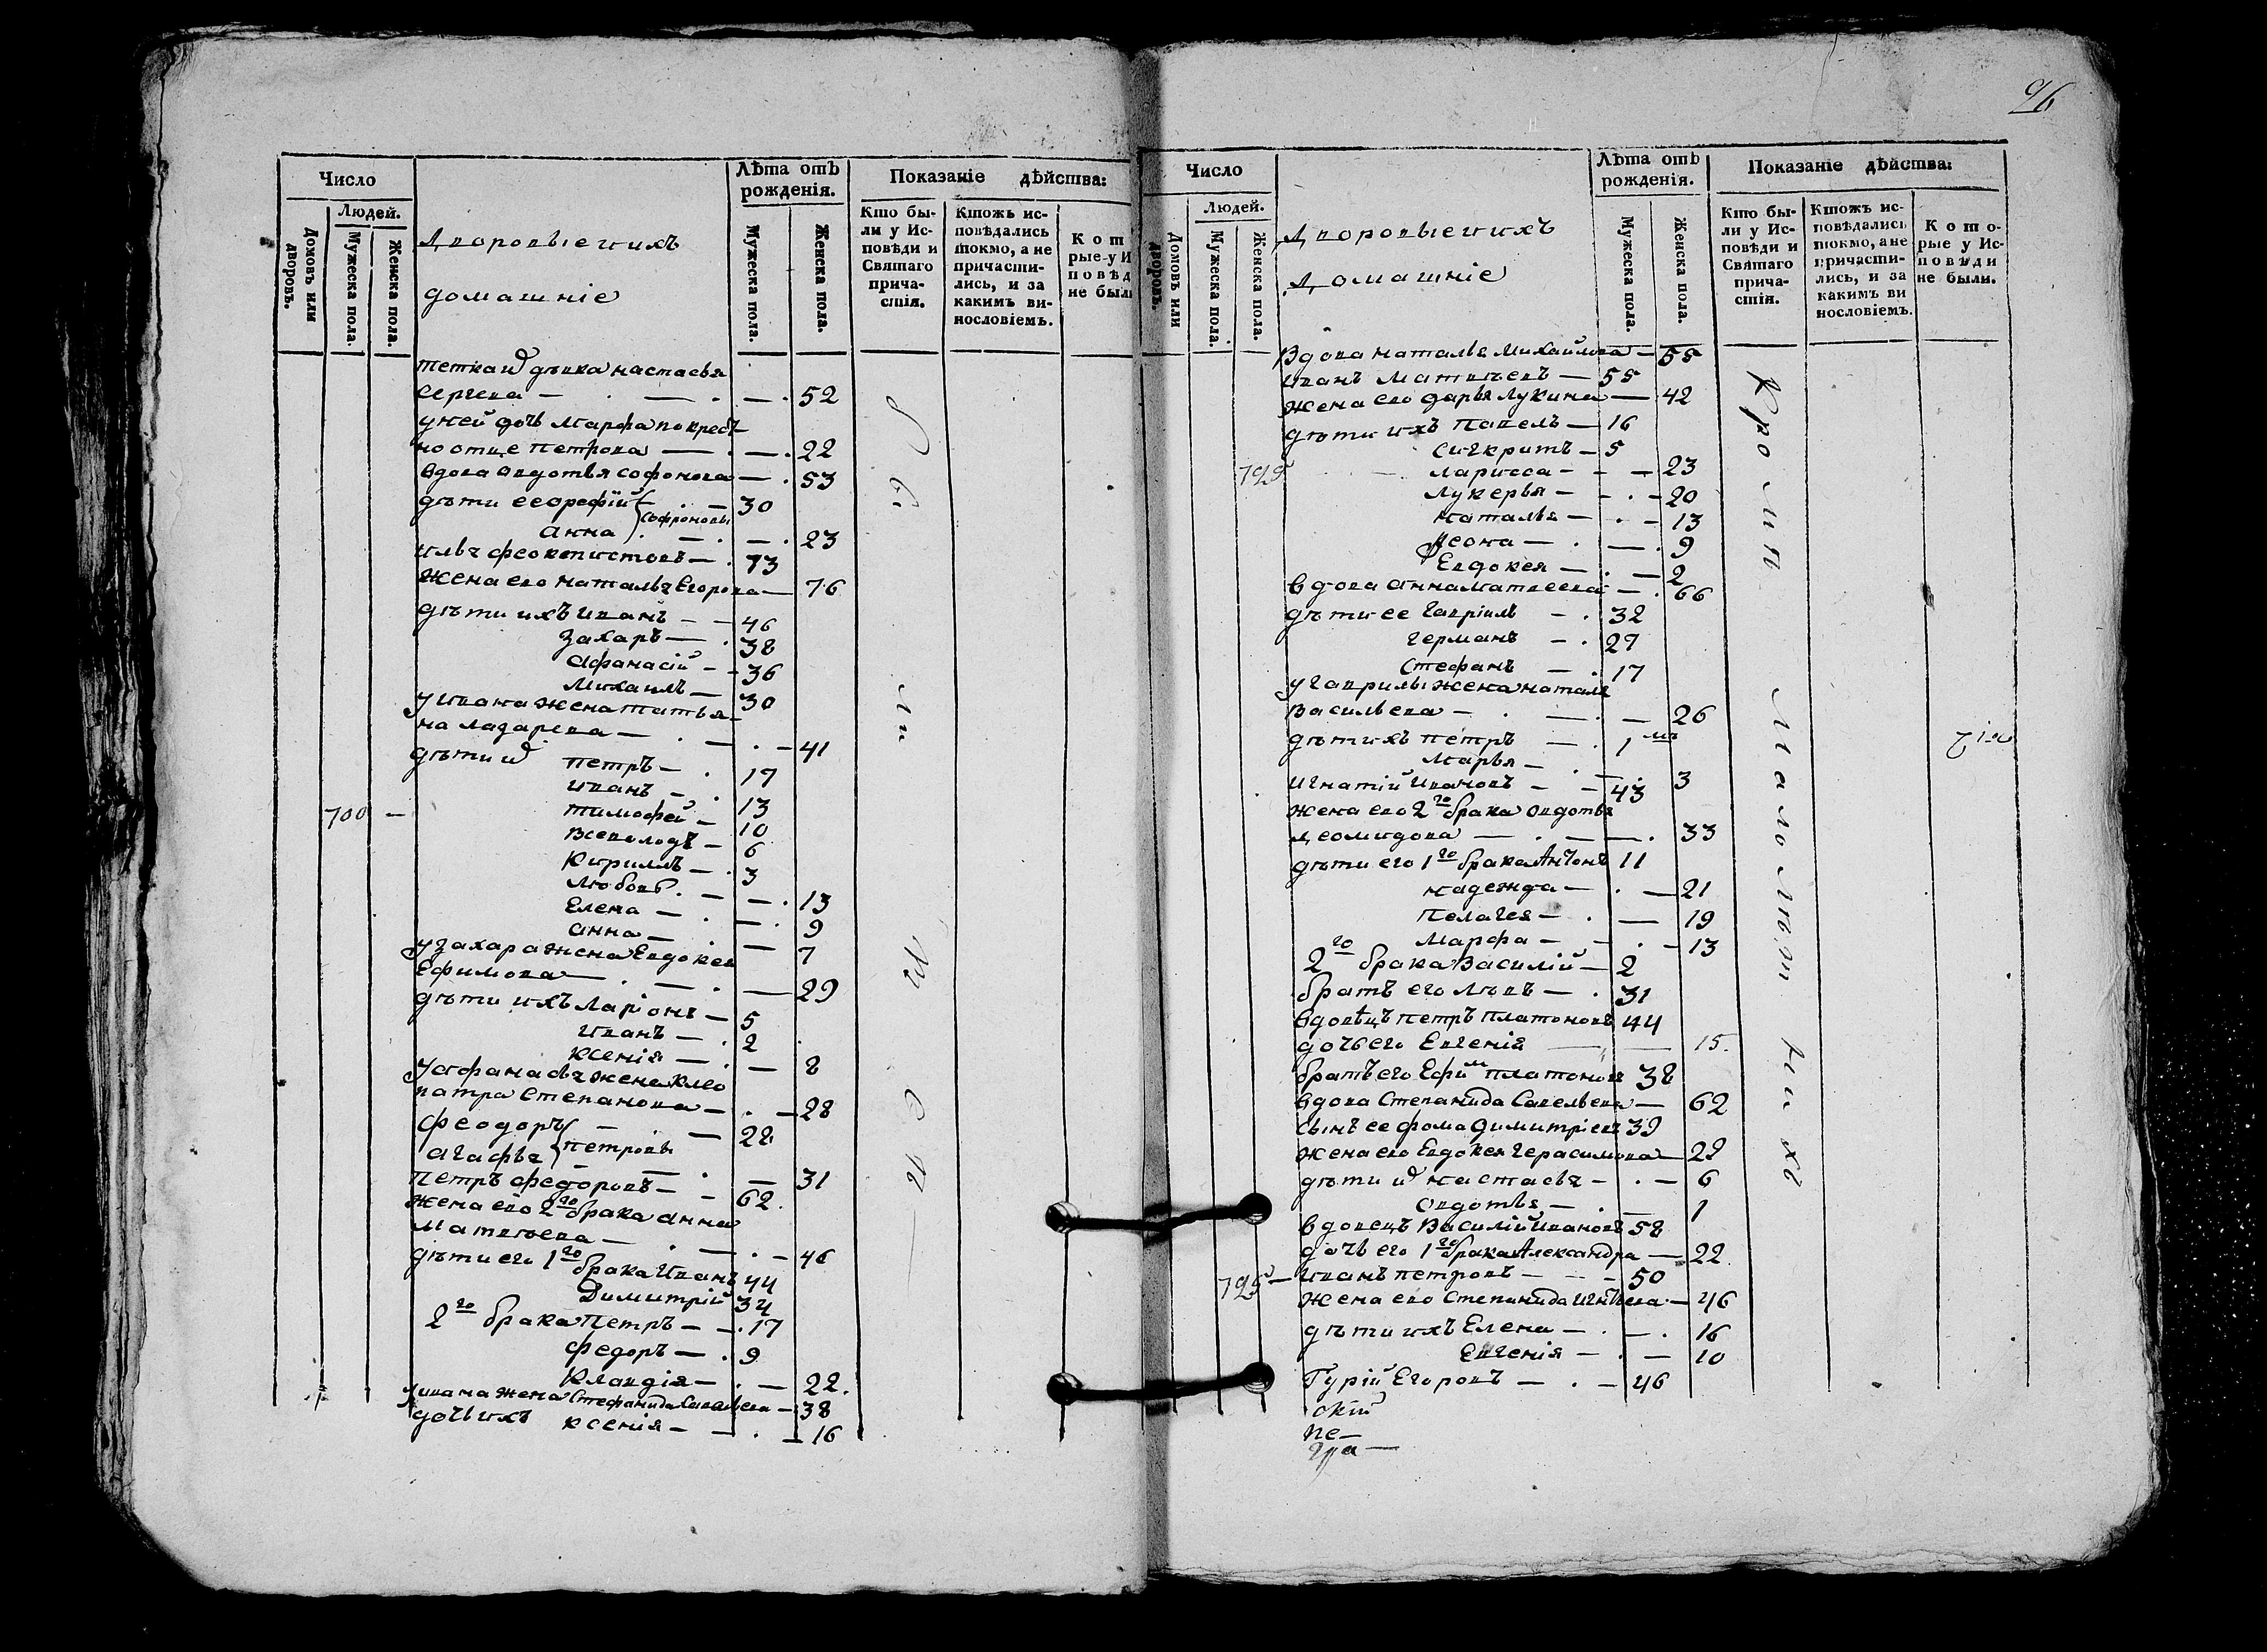 96
Число
Людей.
Домовъ или дворовъ.
Мужеска пола.
Женска пола.
Дворовые и ихъ
домашніе
Лѣта отъ рожденія.
Мужеска пола.
Женска пола.
Показаніе дѣйства:
Кто бы-
ли у Ис-
повѣди и
Святаго
прича-
стія.
Ктожъ ис-
повѣдались
токмо, а не
причасти-
лись, и за
какимъ ви-
нословіемъ.
К о т
рые у И
п о в ѣ д
не был
тетка дѣвка настасья
сергева — 52
у ней дочь Марфа по крест-
но отце петрова — 22
вдова Авдотья софонова — 53
дѣти ее орефій 30
Софроновы
Анна 23
илья феоктистовъ — 73
Жена его наталья Егорова — 76
дѣти ихъ иванъ — 46
Захаръ — 38
Афанасій — 36
Михаилъ — 30
у ивана жена татья-
на лазарева — 41
дѣти петръ — 17
иванъ — 13
тимофей — 10
всеволодъ — 6
Кирилъ — 3
700 —
Любовь — 13
Елена — 9
Анна — 7
у захара жена Евдокея
Ефимова — 29
дѣти ихъ Ларіонъ — 5
иванъ — 2
Ксенія — 8
у афанасья жена клео
патра степанова — 28
Феодоръ — 28
петровы
Агафья — 31
петръ федоровъ — 62
жена его 2го брака анна
Матвѣева — 46
дѣти его 1го брака иванъ 44
Димитрій 34
2го брака петръ — 17
Федоръ — 9
Клавдія — 22
у ивана жена Стефанида Савельева — 38
дочь ихъ ксенія — 16
Число
Людей.
Домовъ или дворовъ.
Мужеска пола.
Женска пола.
Дворовые и ихъ
Домашніе
Лѣта отъ рожденія.
Мужеска пола.
Женска пола.
Показаніе дѣйства:
Кто бы-
ли у Ис-
повѣди и
Святаго
прича-
стія.
Ктожъ ис-
повѣдались
токмо, а не
причасти-
лись, и за
какимъ ви
нословіемъ.
К о т о-
рые у Ис-
п о в ѣ д и
не были.
Вдова наталья Михайлова — 55
иванъ Матвѣевъ — 55
жена его дарья Лукина — 42
дѣти ихъ павелъ — 16
сигкритъ — 5
Ларисса — 23
Лукерья — 20
наталья — 13
Феона — 9
Евдокея — 2
вдова анна матвеева — 66
дѣти ее гавріилъ — 32
германъ — 27
стефанъ — 17
у гаврилы жена наталя
васильева — 26
дѣти ихъ петръ — 1
Марья — 3
игнатій ивановъ — 43
жена его 2го брака овдотья
леомидова — 33
дѣти его 1го брака Антонъ 11
надежда — 21
пелагея — 19
Марфа — 13
2го брака Василій — 2
братъ его Львъ — 31
вдовецъ петръ платоновъ 44
дочь его Евгенія — 15.
братъ его Ефимъ платоновъ 38
вдова Степанида Савельева — 62
сынъ ее фома димитріевъ 39
жена его Евдокея герасимова — 29
дѣти настасья — 6
овдотья — 1
вдовецъ Василій ивановъ 58
дочь его 1го брака Александра — 22
725 — иванъ петровъ — 50
жена его степанида игнтьева — 46
дѣти ихъ Елена — 16
Евгенія — 10
Гурій Егоровъ — 46
ский
пе—
Кромѣ
Малолѣтнихъ